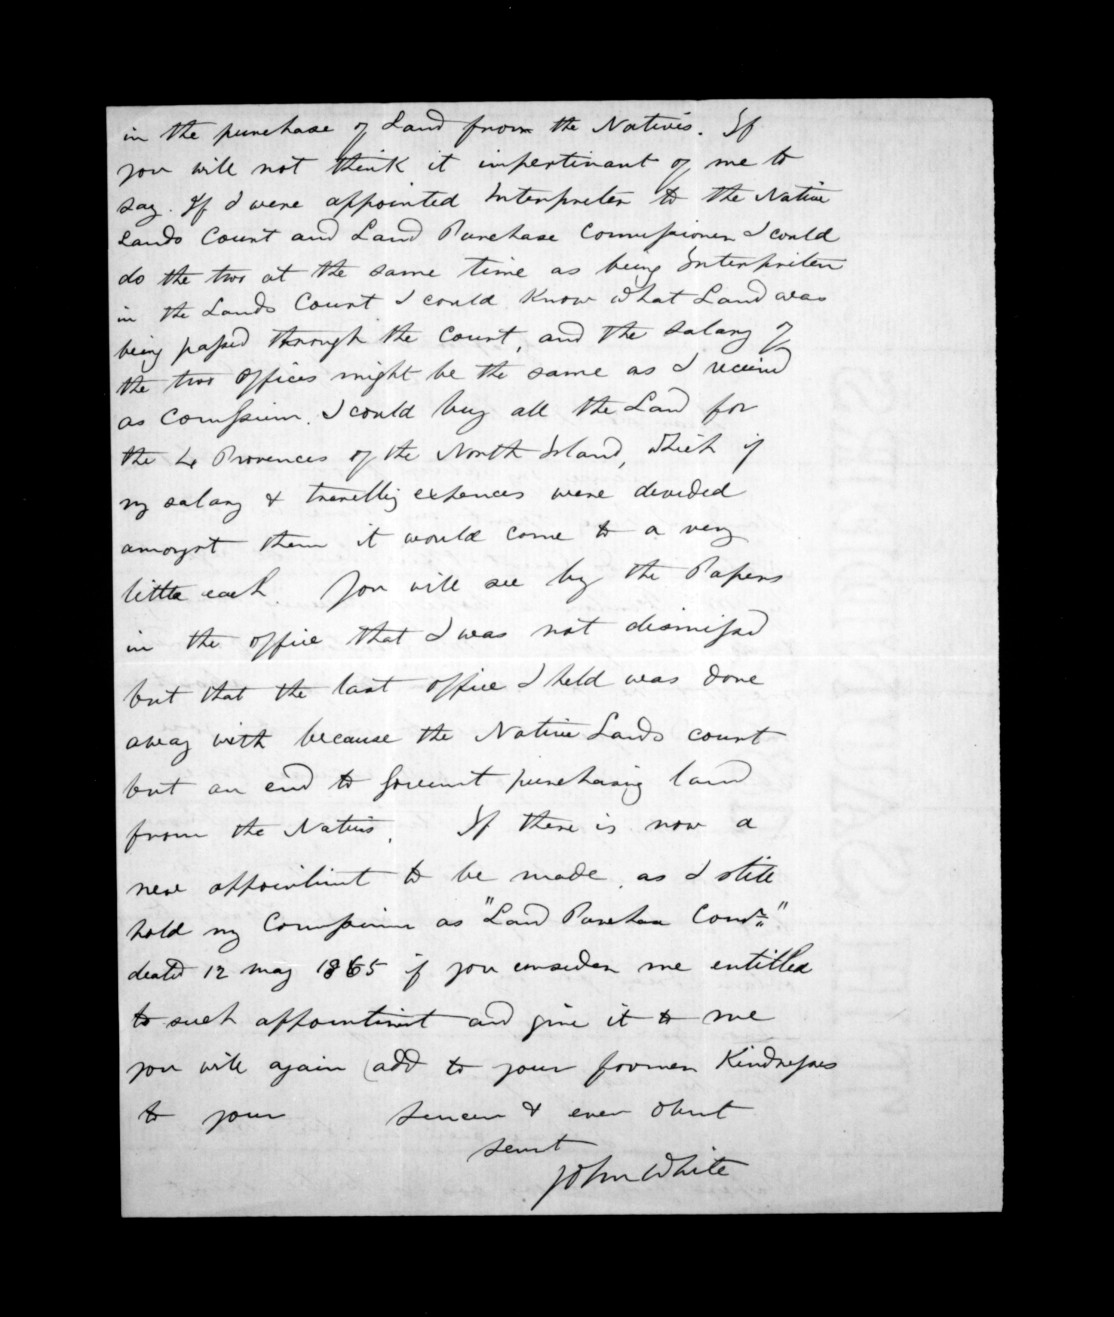 in the purchase of Land from the Natives. If
you will not think it impertinant of me to
say. If I were appointed Interpreter to the Native
Lands Court and Land Purchase Commissioner I could
do the two at the same time as being Interpreter
in the Lands Court I could know what Land was
being passed through the Court, and the salary of
the two offices might be the same as I received
as Comssioner. I could buy all the Land for
the 4 Provences of the North Island, which if
my salary & travelling expences were devided
amongst them it would come to a very
little each You will see by the Papers
in the office that I was not dismissed
but that the last office I held was done
away with because the Native Lands court
put an end to Goverment purchasing land
from the Natives. If there is now a
new appointment to be made, as I still
hold my Commission as "Land Purchase Comr."
dated 12 may 1865 if you consider me entitled
to such appointment and give it to me
you will again add to your former Kindnesses
to your sincere & ever obent
servt
John White